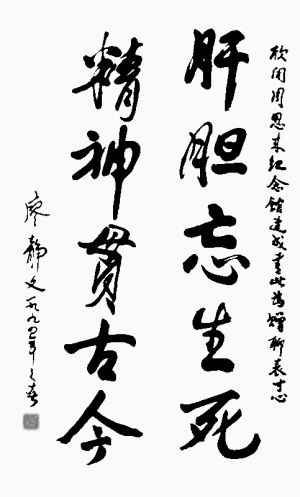 欣闻周恩来纪念馆建成书此为赠聊表寸心
肝胆忘生死
精神贯古今
廖静文一九九四年之春